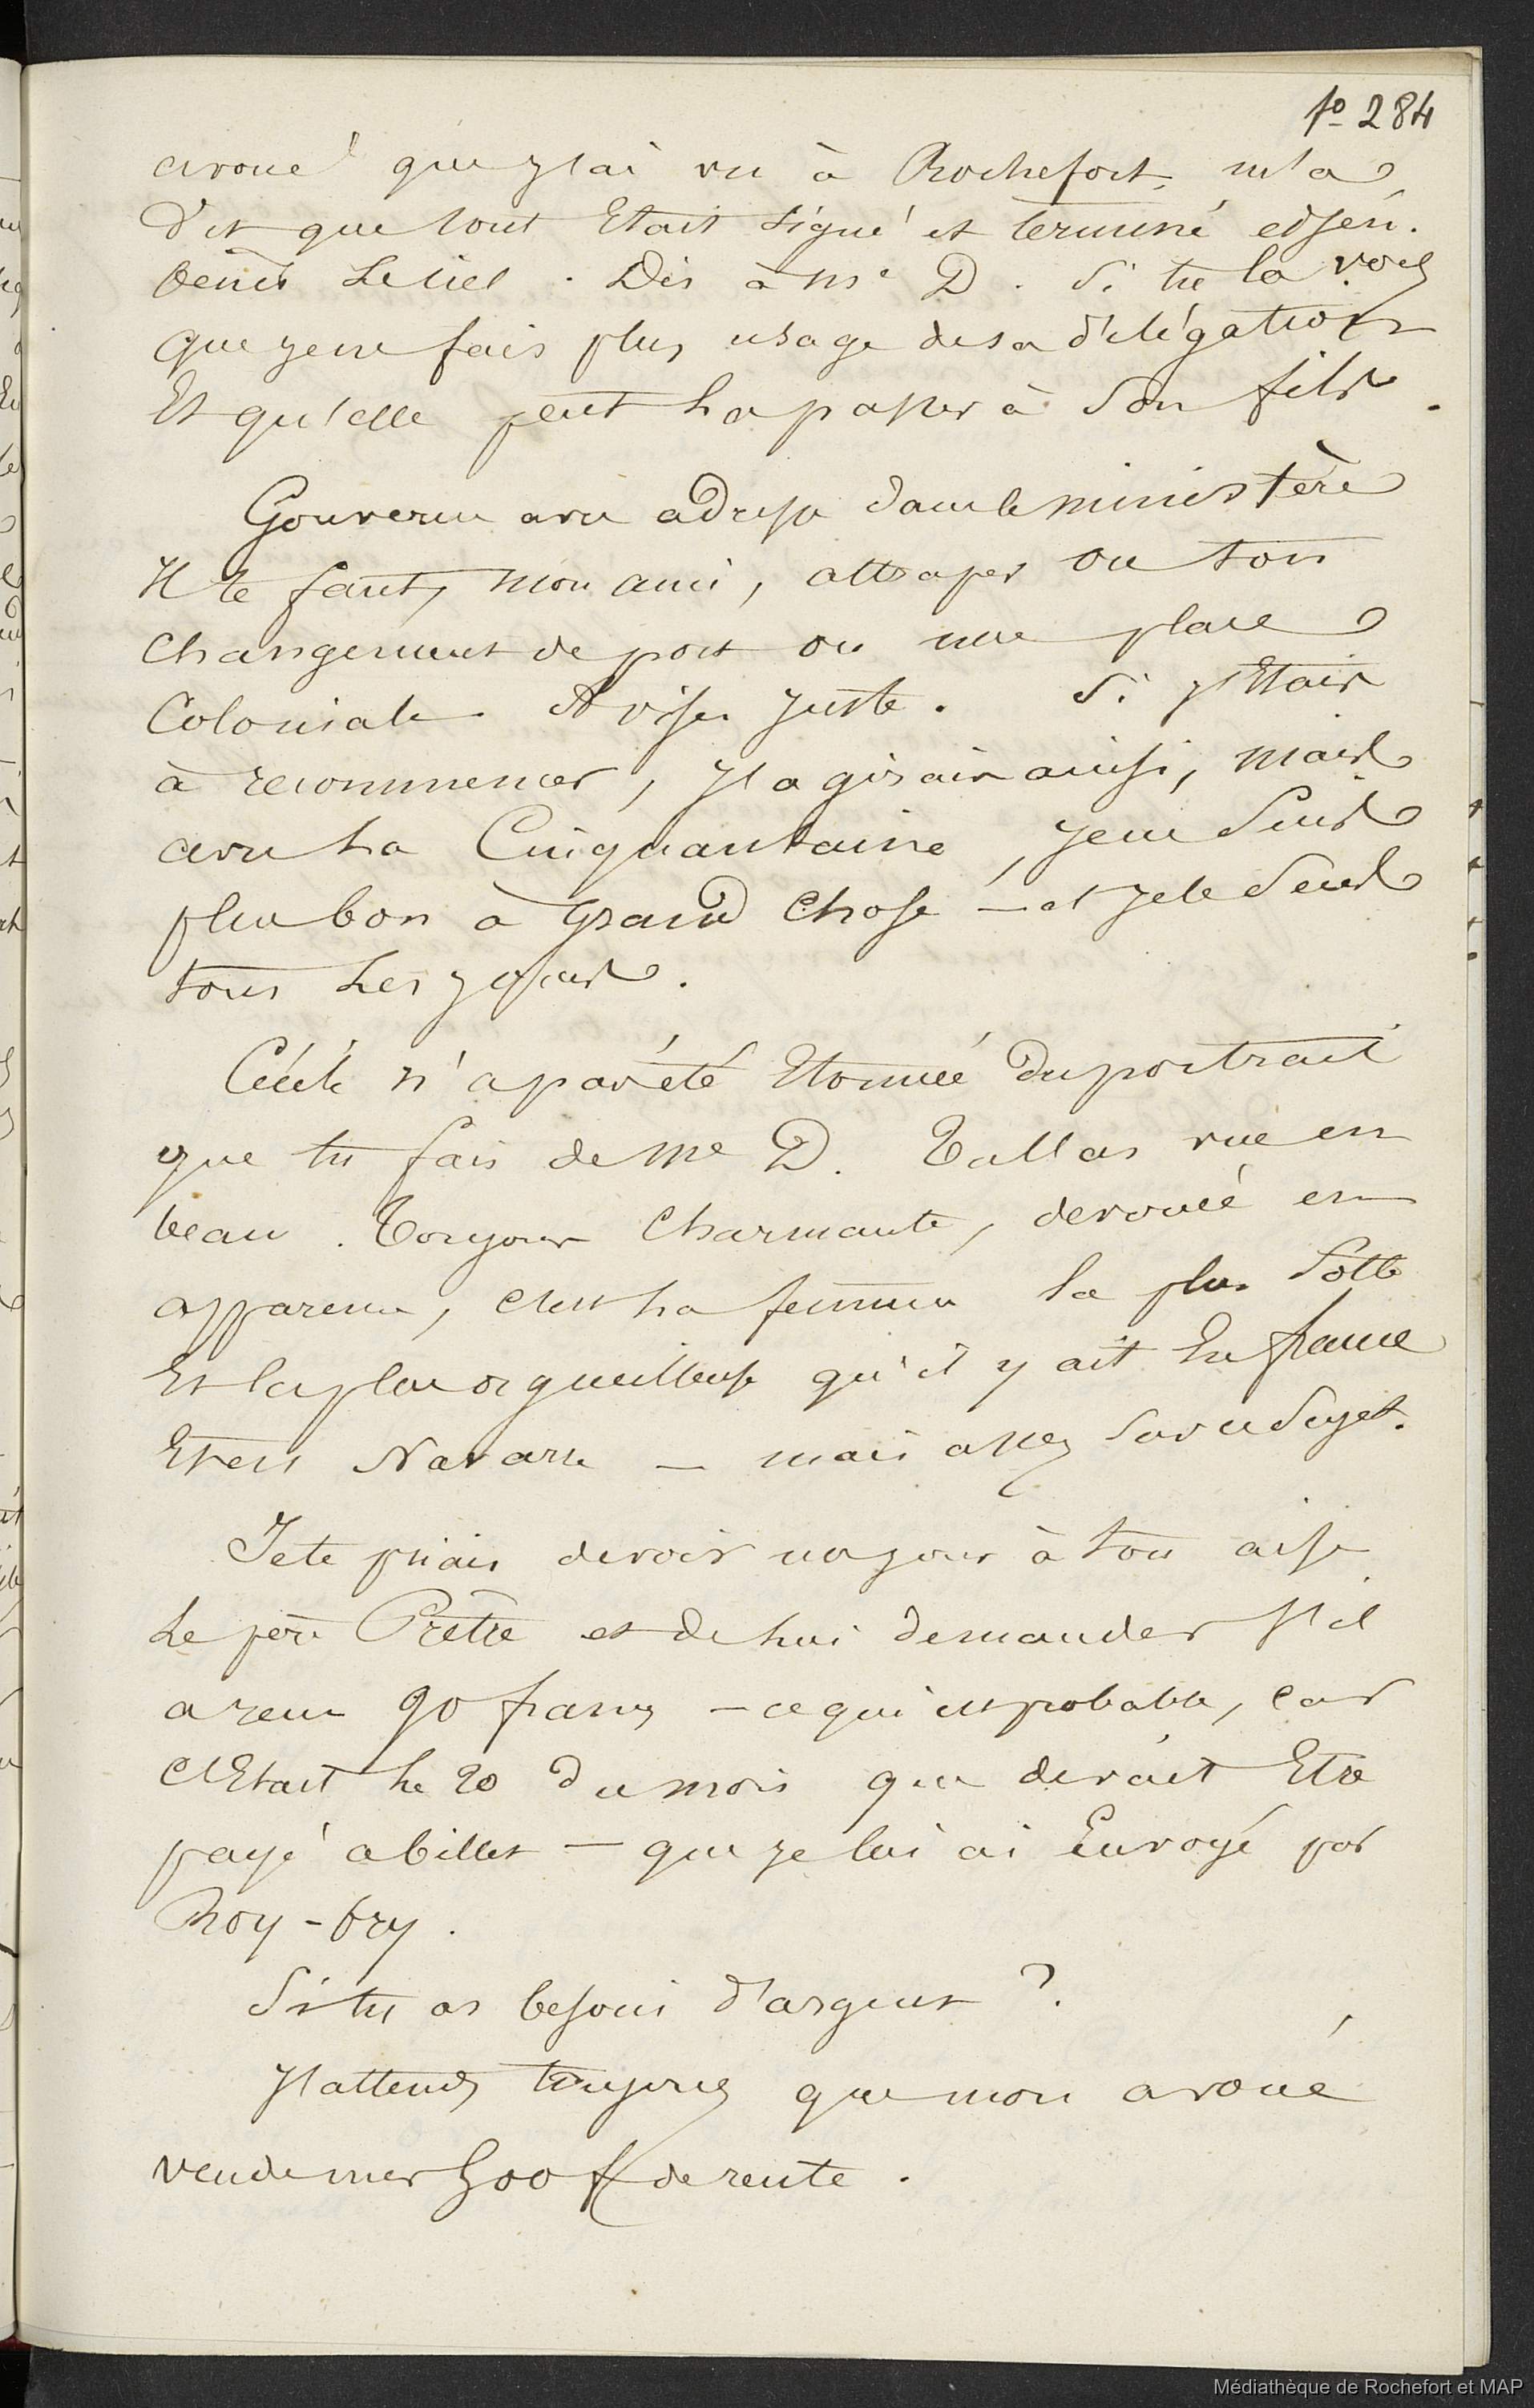 fo 284
avoué que j'ai vu à Rochefort, m'a
dit que tout Etait signé et terminé et j'en
bénis le ciel. Dis à Me D. si tu la vois
que je ne fais plus usage de sa délégation
Et qu'elle peut la passer à son fils.
Gouverne avec adresse dans le ministère
Il te faut, mon ami, attraper ou ton
changement de port ou une place
Coloniale. Avise juste. Si j'Etais
à recommencer, j'agirais ainsi, mais
avec la Cinquantaine, je ne suis
plus bon à grand chose — et je le sens
tous les jours.
Cécile n'a pas été Etonnée du portrait
que tu fais de Me D. Tu l'as vue en
beau. Toujours Charmante, dévouée en
apparence, c'est la femme la plus sotte
Et la plus orgueilleuse qu'il y ait En france
Et en Navarre — mais assez sur ce sujet.
Je te priais de voir un jour à ton aise
le père Prêtre et de lui demander s'il
a reçu 90 francs — ce qui est probable, car
c'Etait le 20 du mois que devait Etre
payé ce billet — que je lui ai Envoyé par
Roy-bry.
Si tu as besoin d'argent ?
J'attends toujours que mon avoué
vende mes 500 f de rente.
Médiathèque de Rochefort et MAP